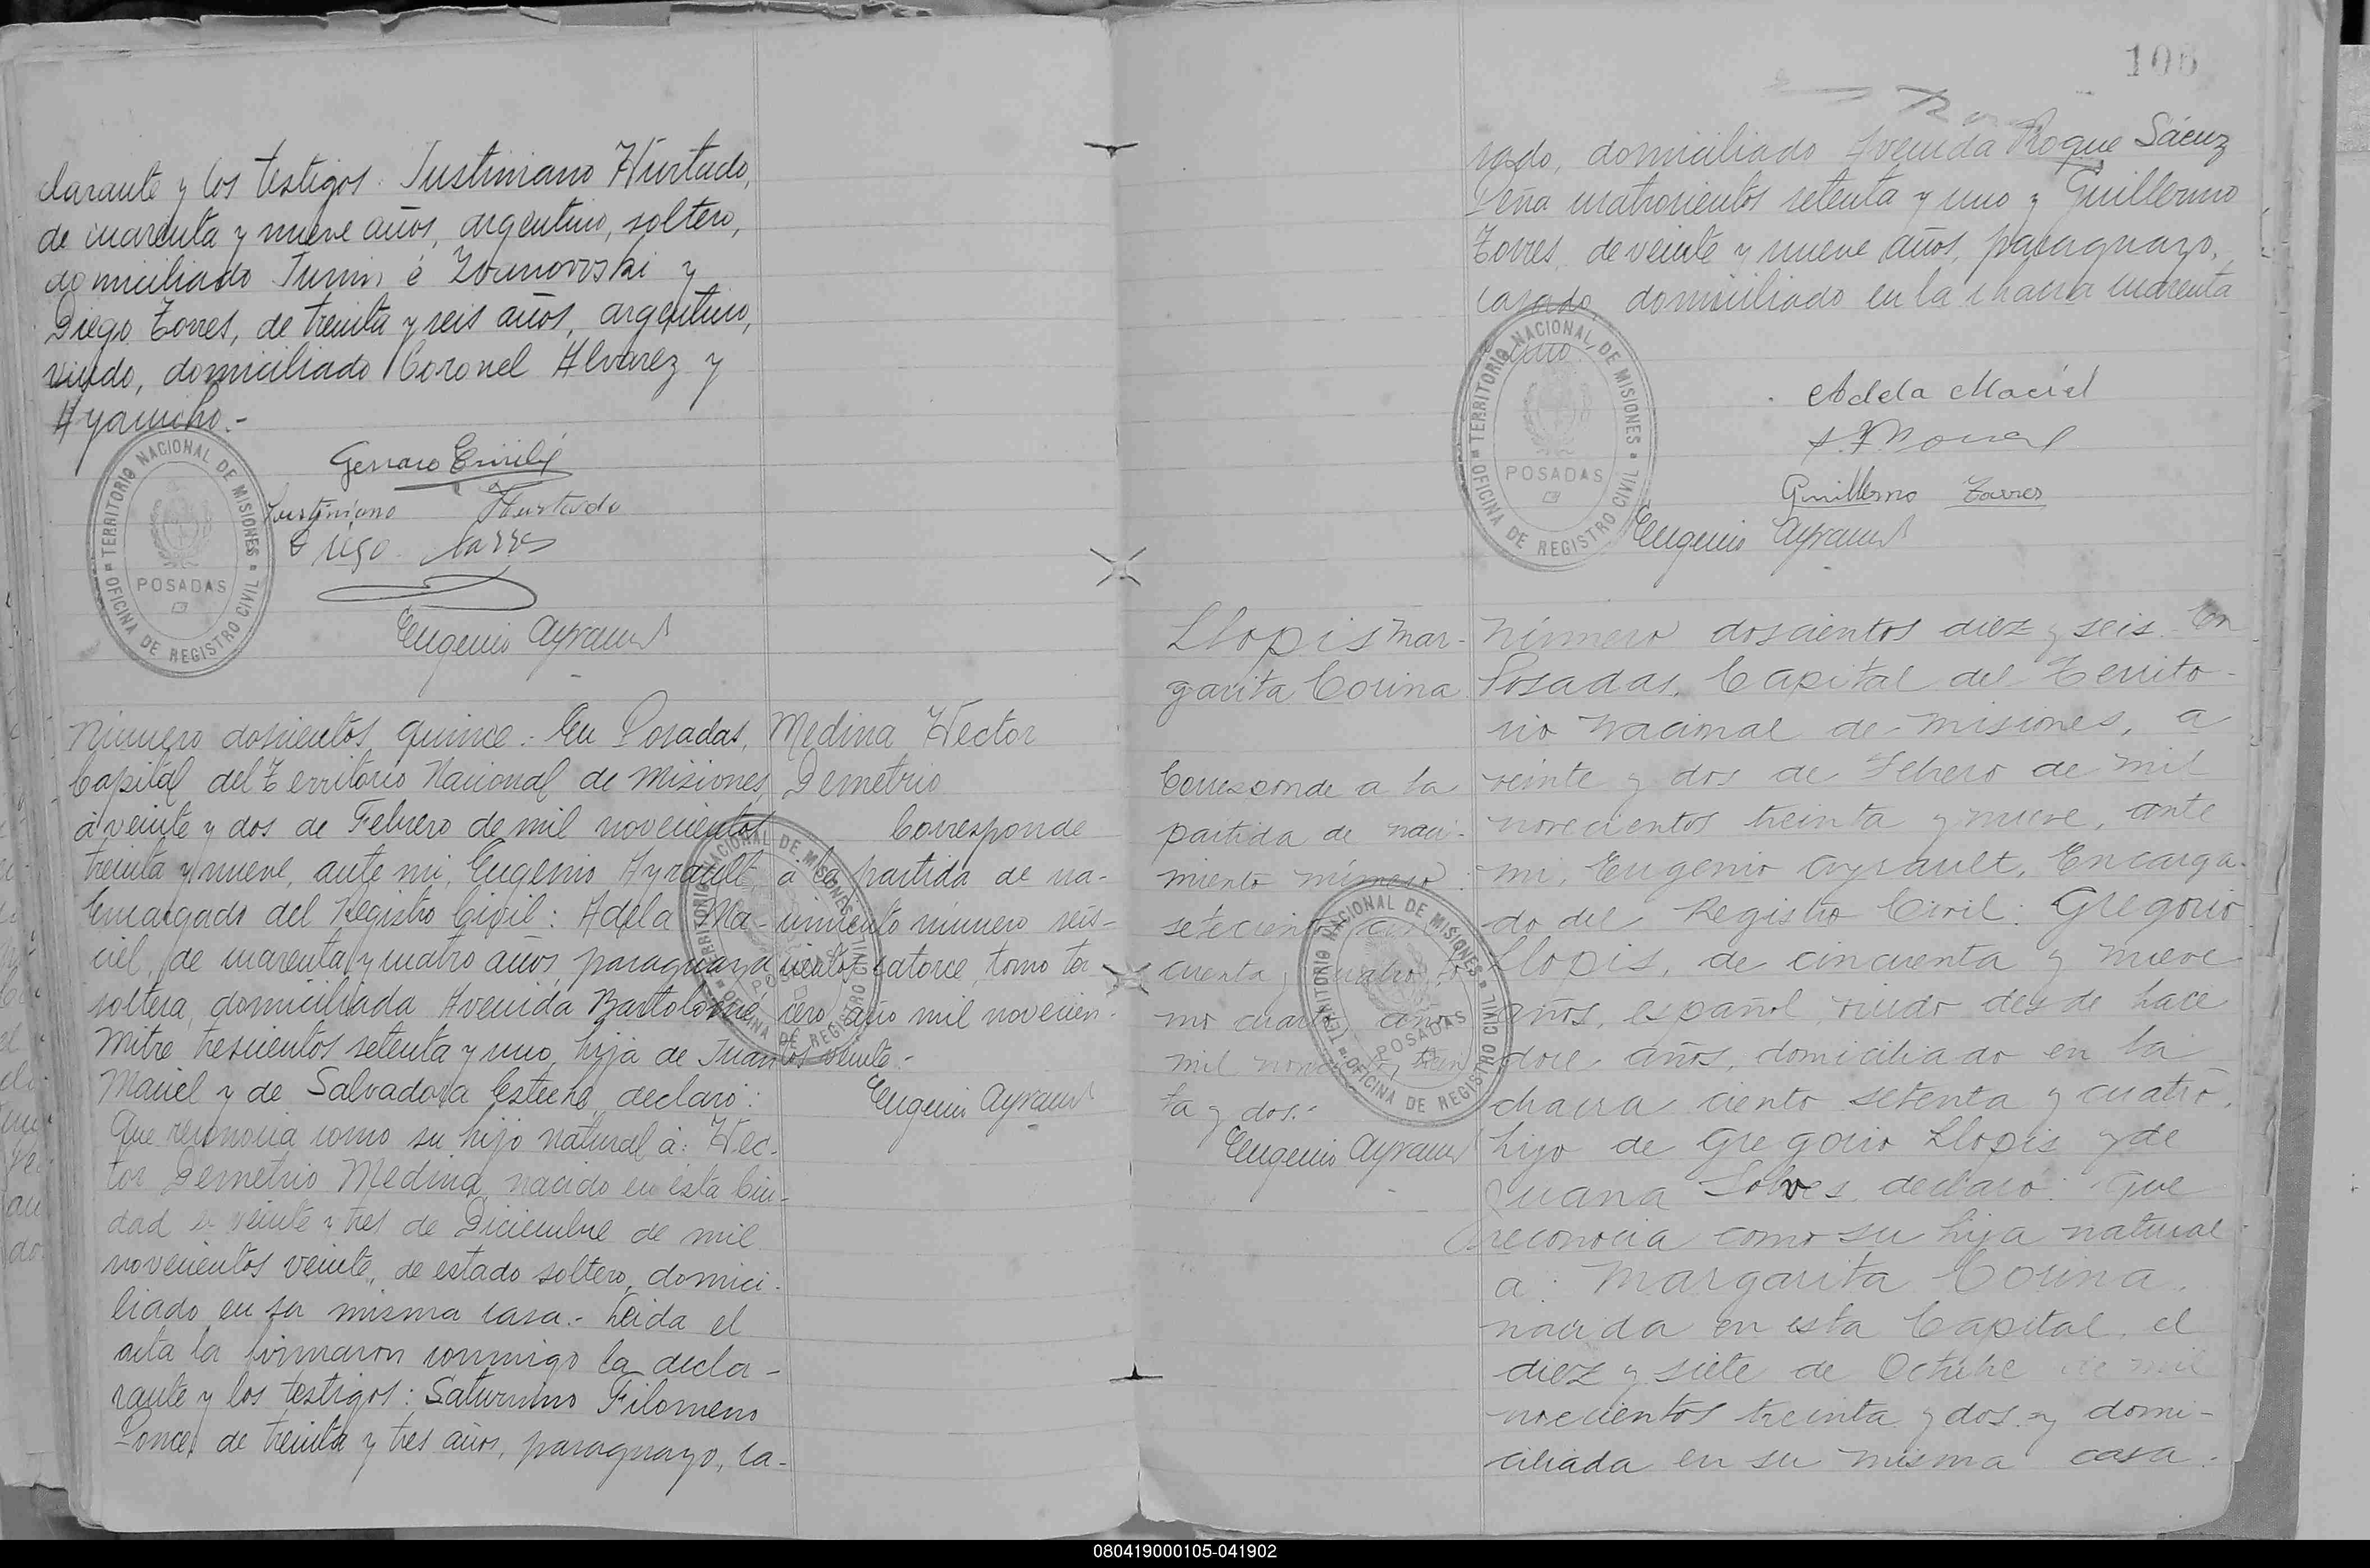 clarante y los testigos: Justiniano Hurtado,
de cuarenta y nueve años, argentino, soltero,
domiciliado Junin é Ivanovvski y
Diego Torres, de treinta y seis años, argentino,
viudo, domiciliado Coronel Alvarez y
Ayacucho.-
Genaro
Justiniano Hurtado
Diego Torres
Eugenio Ayrault
TERRITORIO NACIONAL DE MISIONES
POSADAS
OFICINA DE REGISTRO CIVIL
Número doscientos quince: En Posadas,
Capital del Territorio Nacional de Misiones
á veinte y dos de Febrero de mil novecientos
treinta y nueve, ante mi, Eugenio Ayrault,
Encargado del Registro Civil: Adela Ma-
ciel, de cuarenta y cuatro años paraguaya
soltera, domiciliada Avenida Bartolomé
Mitre trescientos setenta y uno, hija de Juan
Maciel y de Salvadora Esteche, declaró:
Que reconocia como su hijo natural á: Hec-
tor Demetrio Medina, nacido en ésta Ciu-
dad el veinte y tres de Diciembre de mil
novecientos veinte, de estado soltero, domici-
liado en su misma casa.- Leida el
acta la firmaron conmigo la decla-
rante y los testigos: Saturnino Filomeno
Ponce, de treinta y tres años, paraguayo, ca-
Medina Hector
Demetrio
Corresponde
á la partida de na-
cimiento número seis-
cientos catorce, tomo ter
cero año mil novecien-
tos veinte.-
Eugenio Ayrault
TERRITORIO NACIONAL DE MISIONES
POSADAS
OFICINA DE REGISTRO CIVIL
106
sado, domiciliado Avenida Roque Sáenz
Peña cuatrocientos setenta y uno y Guillermo
Torres, de veinte y nueve años, paraguayo,
casado, domiciliado en la chacra cuarenta
y uno.
Adela Maciel
Guillermo Torres
Eugenio Ayrault
TERRITORIO NACIONAL DE MISIONES
POSADAS
OFICINA DE REGISTRO CIVIL
Llopis Mar-
garita Corina
Corresponde a la
partida de naci-
miento número:
setecientos cin
cuenta y cuatro, to
mo cuarto, año
mil novecientos, trein
ta y dos.-
Eugenio Ayrault
TERRITORIO NACIONAL DE MISIONES
POSADAS
OFICINA DE REGISTRO CIVIL
Número doscientos diez y seis.- En
Posadas, Capital del Territo-
rio Nacional de Misiones, a
veinte y dos de Febrero de mil
novecientos treinta y nueve, ante
mi, Eugenio Ayrault, Encarga-
do del Registro Civil: Gregorio
Llopis, de cincuenta y nueve
años, español, viudo desde hace
doce años, domiciliado en la
chacra ciento setenta y cuatro,
hijo de Gregorio Llopis y de
Juana Solves, declaró: Que
reconocia como su hija natural
a: Margarita Corina,
nacida en esta Capital, el
diez y siete de Octubre de mil
novecientos treinta y dos y domi-
ciliada en su misma casa.-
080419000105-041902